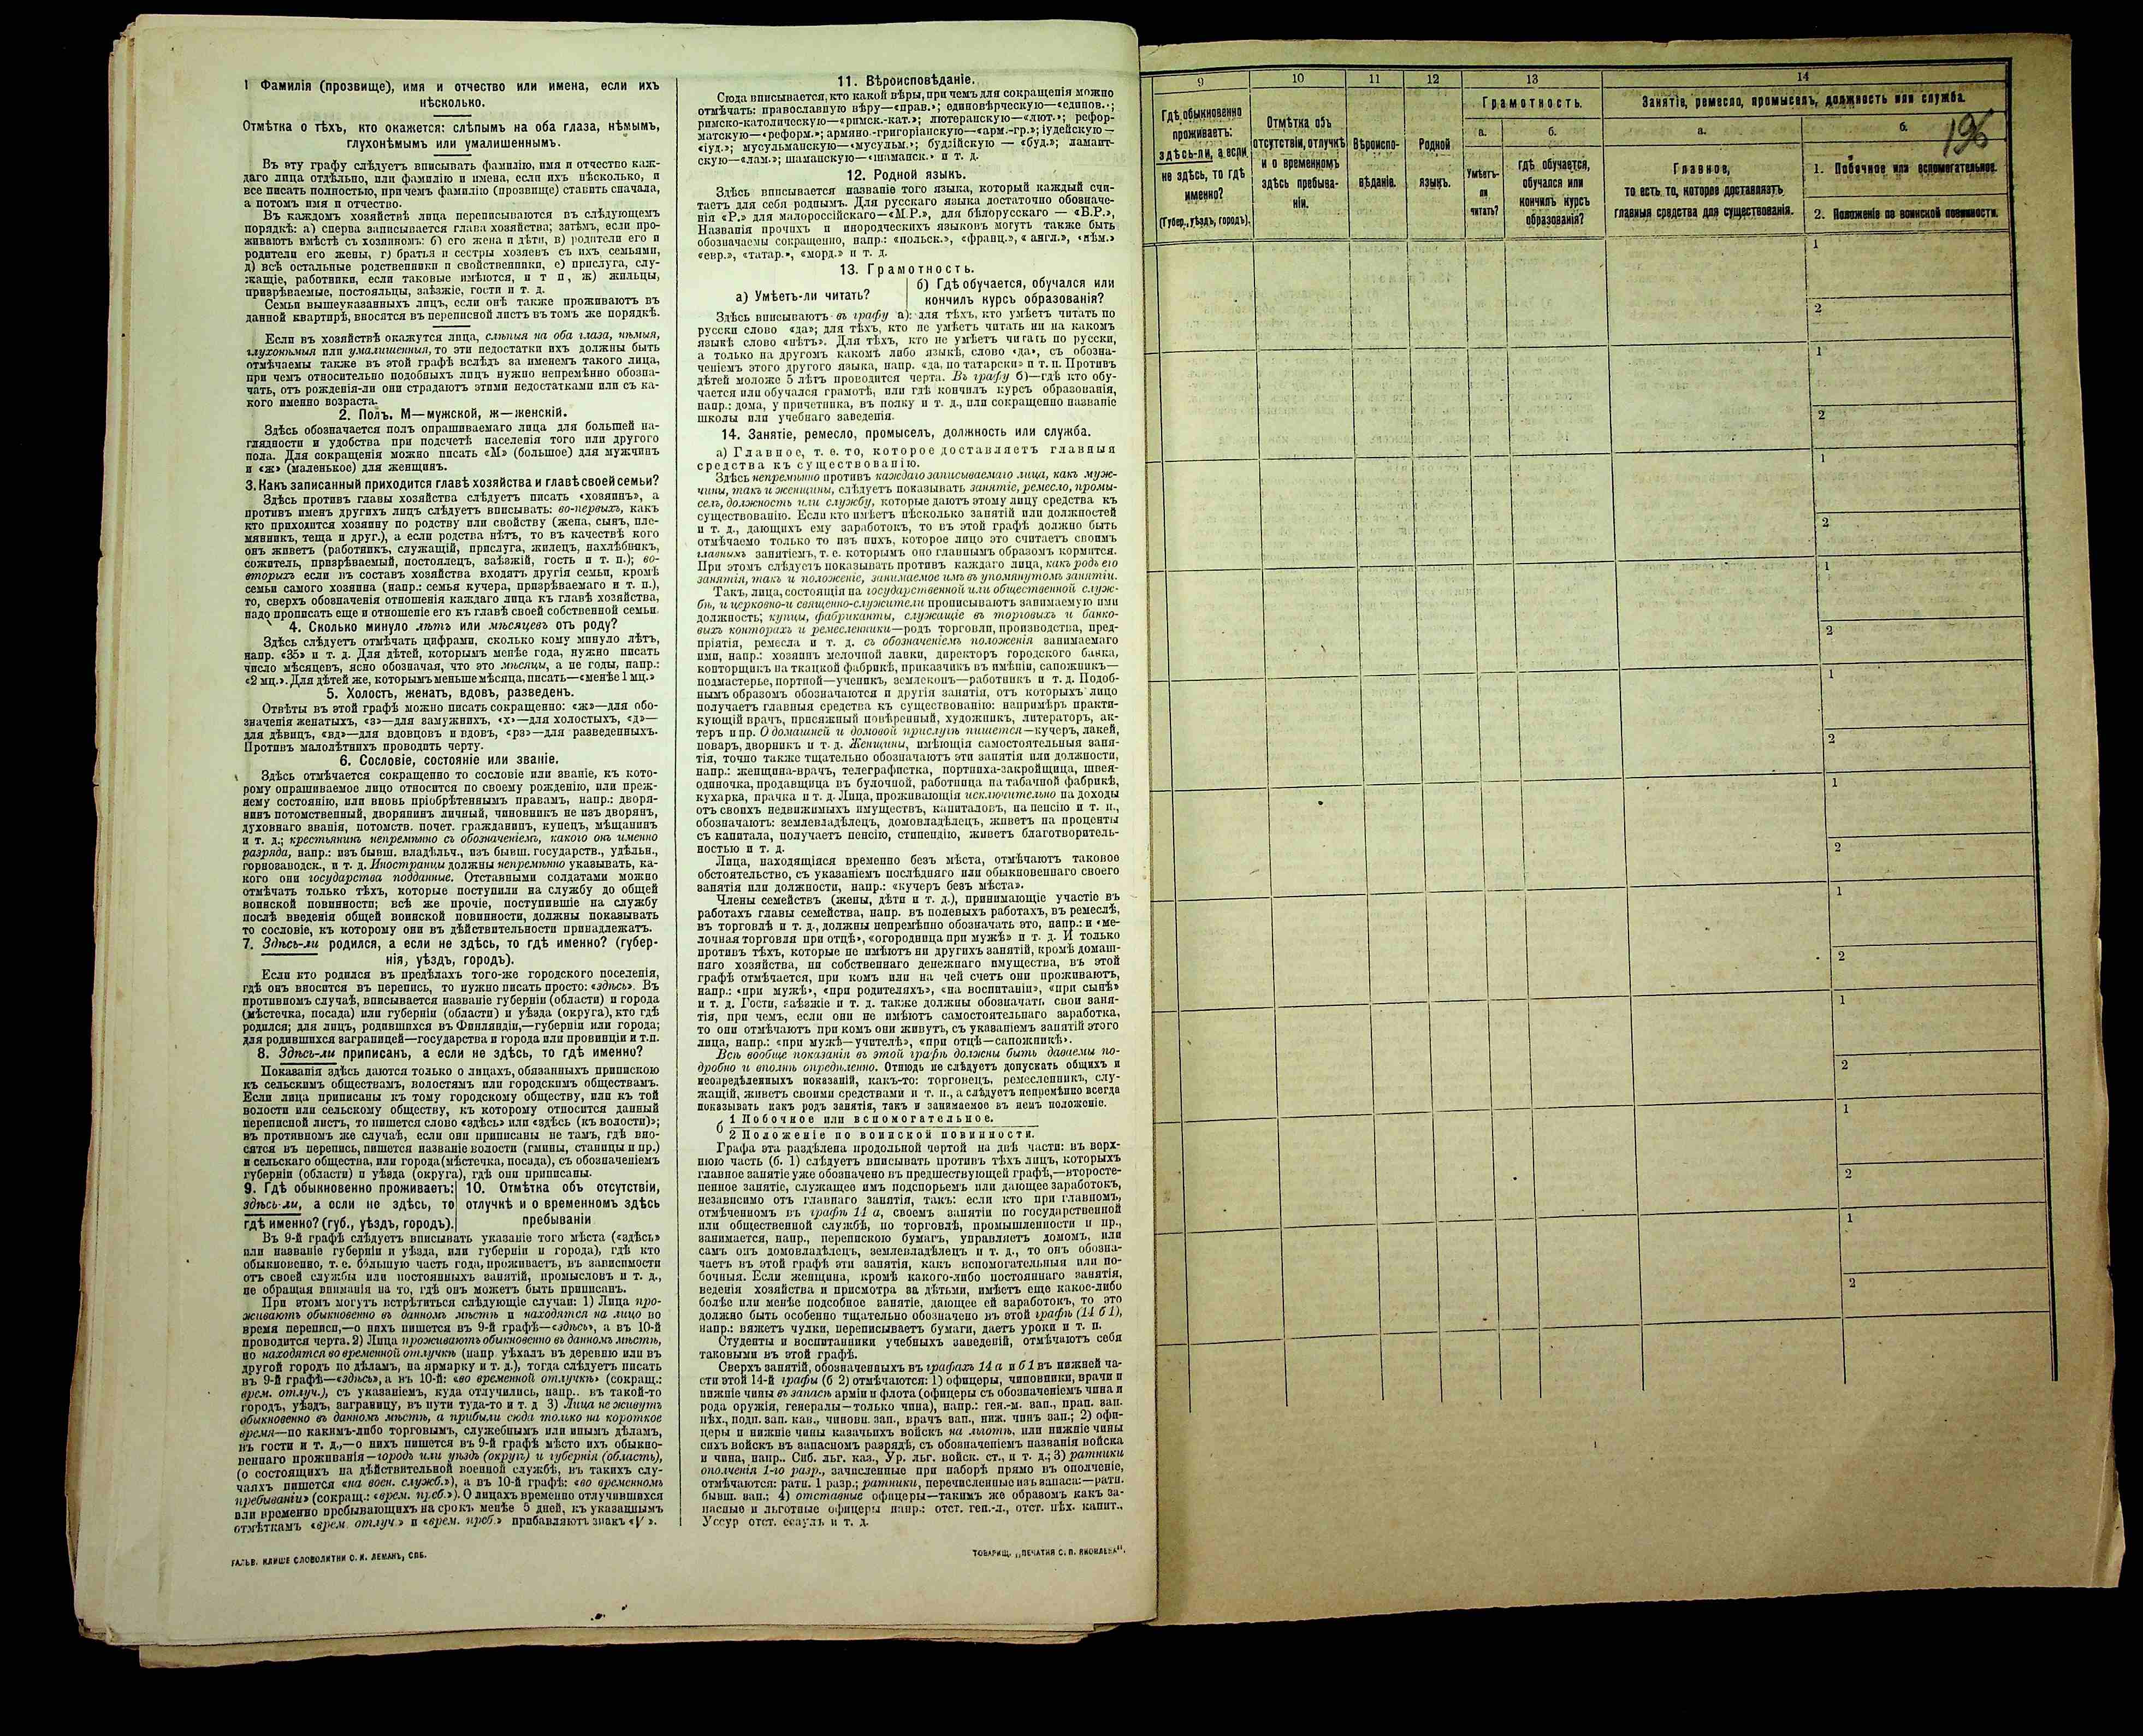 1 Фамилія (прозвище), имя и отчество или имена, если ихъ
нѣсколько.
Отмѣтка о тѣхъ, кто окажется: слѣпымъ на оба глаза, нѣмымъ,
глухонѣмымъ или умалишеннымъ.
Въ эту графу слѣдуетъ вписывать фамилію, имя и отчество каж-
даго лица отдѣльно, или фамилію и имена, если ихъ нѣсколько, и
все писать полностью, при чемъ фамилію (прозвище) ставить сначала,
а потомъ имя и отчество.
Въ каждомъ хозяйствѣ лица переписываются въ слѣдующемъ
порядкѣ: а) сперва записывается глава хозяйства; затѣмъ, если про-
живаютъ вмѣстѣ съ хозяиномъ: б) его жена и дѣти, в) родители его и
родители его жены, г) братья и сестры хозяевъ съ ихъ семьями,
д) всѣ остальные родственники и свойственники, е) прислуга, слу-
жащіе, работники, если таковые имѣются, и т п, ж) жильцы,
призрѣваемые, постояльцы, заѣзжіе, гости и т. д.
Семьи вышеуказанныхъ лицъ, если онѣ также проживаютъ въ
данной квартирѣ, вносятся въ переписной листъ въ томъ же порядкѣ.
Если въ хозяйствѣ окажутся лица, слѣпыя на оба глаза, нѣмыя,
глухонѣмыя или умалишенныя, то эти недостатки ихъ должны быть
отмѣчаемы также въ этой графѣ вслѣдъ за именемъ такого лица,
при чемъ относительно подобныхъ лицъ нужно непремѣнно обозна-
чать, отъ рожденія-ли они страдаютъ этими недостатками или съ ка-
кого именно возраста.
2. Полъ. М—мужской, ж—женскій.
Здѣсь обозначается полъ опрашиваемаго лица для большей на-
глядности и удобства при подсчетѣ населенія того или другого
пола. Для сокращенія можно писать «М» (большое) для мужчинъ
и «ж» (маленькое) для женщинъ.
3. Какъ записанный приходится главѣ хозяйства и главѣ своей семьи?
Здѣсь противъ главы хозяйства слѣдуетъ писать «хозяинъ», а
противъ именъ другихъ лицъ слѣдуетъ вписывать: во-первыхъ, какъ
кто приходится хозяину по родству или свойству (жена, сынъ, пле-
мянникъ, теща и друг.), а если родства нѣтъ, то въ качествѣ кого
онъ живетъ (работникъ, служащій, прислуга, жилецъ, нахлѣбникъ,
сожитель, призрѣваемый, постоялецъ, заѣзжій, гость и т. п.); во-
вторыхъ если въ составъ хозяйства входятъ другія семьи, кромѣ
семьи самого хозяина (напр.: семья кучера, призрѣваемаго и т. п.),
то, сверхъ обозначенія отношенія каждаго лица къ главѣ хозяйства,
надо прописать еще и отношеніе его къ главѣ своей собственной семьи.
4. Сколько минуло лѣтъ или мѣсяцевъ отъ роду?
Здѣсь слѣдуетъ отмѣчать цифрами, сколько кому минуло лѣтъ,
напр. «35» и т. д. Для дѣтей, которымъ менѣе года, нужно писать
число мѣсяцевъ, ясно обозначая, что это мѣсяцы, а не годы, напр.:
«2 мц.». Для дѣтей же, которымъ меньше мѣсяца, писать—«менѣе 1 мц.»
5. Холостъ, женатъ, вдовъ, разведенъ.
Отвѣты въ этой графѣ можно писать сокращенно: «ж»—для обо-
значенія женатыхъ, «з»—для замужнихъ, «х»—для холостыхъ, «д»—
для дѣвицъ, «вд»—для вдовцовъ и вдовъ, «рз»—для разведенныхъ.
Противъ малолѣтнихъ проводить черту.
6. Сословіе, состояніе или званіе.
Здѣсь отмѣчается сокращенно то сословіе или званіе, къ кото-
рому опрашиваемое лицо относится по своему рожденію, или преж-
нему состоянію, или вновь пріобрѣтеннымъ правамъ, напр.: дворя-
нинъ потомственный, дворянинъ личный, чиновникъ не изъ дворянъ,
духовнаго званія, потомств. почет. гражданинъ, купецъ, мѣщанинъ
и т. д.; крестьянинъ непремѣнно съ обозначеніемъ, какого онъ именно
разряда, напр.: изъ бывш. владѣльч., изъ бывш. государств., удѣльн.,
горнозаводск., и т. д. Иностранцы должны непремѣнно указывать, ка-
кого они государства подданные. Отставными солдатами можно
отмѣчать только тѣхъ, которые поступили на службу до общей
воинской повинности; всѣ же прочіе, поступившіе на службу
послѣ введенія общей воинской повинности, должны показывать
то сословіе, къ которому они въ дѣйствительности принадлежатъ.
7. Здѣсь-ли родился, а если не здѣсь, то гдѣ именно? (губер-
нія, уѣздъ, городъ).
Если кто родился въ предѣлахъ того-же городского поселенія,
гдѣ онъ вносится въ перепись, то нужно писать просто: «здѣсь». Въ
противномъ случаѣ, вписывается названіе губерніи (области) и города
(мѣстечка, посада) или губерніи (области) и уѣзда (округа), кто гдѣ
родился; для лицъ, родившихся въ Финляндіи,—губерніи или города;
для родившихся заграницей—государства и города или провинціи и т.п.
8. Здѣсь-ли приписанъ, а если не здѣсь, то гдѣ именно?
Показанія здѣсь даются только о лицахъ, обязанныхъ припискою
къ сельскимъ обществамъ, волостямъ или городскимъ обществамъ.
Если лица приписаны къ тому городскому обществу, или къ той
волости или сельскому обществу, къ которому относится данный
переписной листъ, то пишется слово «здѣсь» или «здѣсь (къ волости)»;
въ противномъ же случаѣ, если они приписаны не тамъ, гдѣ вно-
сятся въ перепись, пишется названіе волости (гмины, станицы и пр.)
и сельскаго общества, или города (мѣстечка, посада), съ обозначеніемъ
губерніи (области) и уѣзда (округа), гдѣ они приписаны.
9. Гдѣ обыкновенно проживаетъ:
здѣсь-ли, а если не здѣсь, то
гдѣ именно? (губ., уѣздъ, городъ).
10. Отмѣтка объ отсутствіи,
отлучкѣ и о временномъ здѣсь
пребываніи
Въ 9-й графѣ слѣдуетъ вписывать указаніе того мѣста («здѣсь»
или названіе губерніи и уѣзда, или губерніи и города), гдѣ кто
обыкновенно, т. е. большую часть года, проживаетъ, въ зависимости
отъ своей службы или постоянныхъ занятій, промысловъ и т. д.,
не обращая вниманія на то, гдѣ онъ можетъ быть приписанъ.
При этомъ могутъ встрѣтиться слѣдующіе случаи: 1) Лица про-
живаютъ обыкновенно въ данномъ мѣстѣ и находятся на лицо во
время переписи,—о нихъ пишется въ 9-й графѣ—«здѣсь», а въ 10-й
проводится черта. 2) Лица проживаютъ обыкновенно въ данномъ мѣстѣ,
но находятся во временной отлучкѣ (напр. уѣхалъ въ деревню или въ
другой городъ по дѣламъ, на ярмарку и т. д.), тогда слѣдуетъ писать
въ 9-й графѣ—«здѣсь», а въ 10-й: «во временной отлучкѣ» (сокращ.:
врем. отлуч.), съ указаніемъ, куда отлучились, напр.. въ такой-то
городъ, уѣздъ, заграницу, въ пути туда-то и т. д 3) Лица не живутъ
обыкновенно въ данномъ мѣстѣ, а прибыли сюда только на короткое
время—по какимъ-либо торговымъ, служебнымъ или инымъ дѣламъ,
въ гости и т. д.,—о нихъ пишется въ 9-й графѣ мѣсто ихъ обыкно-
веннаго проживанія—городъ или уѣздъ (округъ) и губернія (область),
(о состоящихъ на дѣйствительной военной службѣ, въ такихъ слу-
чаяхъ пишется «на воен. службѣ.»), а въ 10-й графѣ: «во временномъ
пребываніи» (сокращ.: «врем. преб.»). О лицахъ временно отлучившихся
или временно пребывающихъ на срокъ менѣе 5 дней, къ указаннымъ
отмѣткамъ «врем. отлуч.» и «врем. преб.» прибавляютъ знакъ «V».
ГАЛЬВ. КЛИШЕ СЛОВОЛИТНИ О. И. ЛЕМАНЪ, СПБ.
11. Вѣроисповѣданіе.
Сюда вписывается, кто какой вѣры, при чемъ для сокращенія можно
отмѣчать: православную вѣру—«прав.»; единовѣрческую—«единов.»;
римско-католическую—«римск.-кат.»; лютеранскую—«лют.»; рефор-
матскую—«реформ.»; армяно-григоріанскую—«арм.-гр.»; іудейскую—
«іуд.»; мусульманскую—«мусульм.»; буддійскую — «буд.»; ламаит-
скую—«лам.»; шаманскую—«шаманск.» и т. д.
12. Родной языкъ.
Здѣсь вписывается названіе того языка, который каждый счи-
таетъ для себя роднымъ. Для русскаго языка достаточно обозначе-
нія «Р.» для малороссійскаго—«М.Р.», для бѣлорусскаго — «Б.Р.»,
Названія прочихъ и инородческихъ языковъ могутъ также быть
обозначаемы сокращенно, напр.: «польск.», «франц.», «англ.», «нѣм.»
«евр.», «татар.», «морд.» и т. д.
13. Грамотность.
а) Умѣетъ-ли читать?
б) Гдѣ обучается, обучался или
кончилъ курсъ образованія?
Здѣсь вписываютъ въ графу а): для тѣхъ, кто умѣетъ читать по
русски слово «да»; для тѣхъ, кто не умѣетъ читать ни на какомъ
языкѣ слово «нѣтъ». Для тѣхъ, кто не умѣетъ читать по русски,
а только на другомъ какомъ либо языкѣ, слово «да», съ обозна-
ченіемъ этого другого языка, напр. «да, по татарски» и т. п. Противъ
дѣтей моложе 5 лѣтъ проводится черта. Въ графу б)—гдѣ кто обу-
чается или обучался грамотѣ, или гдѣ кончилъ курсъ образованія,
напр.: дома, у причетника, въ полку и т. д., или сокращенно названіе
школы или учебнаго заведенія.
14. Занятіе, ремесло, промыселъ, должность или служба.
а) Главное, т. е. то, которое доставляетъ главныя
средства къ существованію.
Здѣсь непремѣнно противъ каждаго записываемаго лица, какъ муж-
чины, такъ и женщины, слѣдуетъ показывать занятіе, ремесло, промы-
селъ, должность или службу, которые даютъ этому лицу средства къ
существованію. Если кто имѣетъ нѣсколько занятій или должностей
и т. д., дающихъ ему заработокъ, то въ этой графѣ должно быть
отмѣчаемо только то изъ нихъ, которое лицо это считаетъ своимъ
главнымъ занятіемъ, т. е. которымъ оно главнымъ образомъ кормится.
При этомъ слѣдуетъ показывать противъ каждаго лица, какъ родъ его
занятія, такъ и положеніе, занимаемое имъ въ упомянутомъ занятіи.
Такъ, лица, состоящія на государственной или общественной служ-
бѣ, и церковно-и священно-служители прописываютъ занимаемую ими
должность; купцы, фабриканты, служащіе въ торговыхъ и банко-
выхъ конторахъ и ремесленники—родъ торговли, производства, пред-
пріятія, ремесла и т. д. съ обозначеніемъ положенія занимаемаго
ими, напр.: хозяинъ мелочной лавки, директоръ городского банка,
конторщикъ на ткацкой фабрикѣ, приказчикъ въ имѣніи, сапожникъ—
подмастерье, портной—ученикъ, землекопъ—работникъ и т. д. Подоб-
нымъ образомъ обозначаются и другія занятія, отъ которыхъ лицо
получаетъ главныя средства къ существованію: напримѣръ практи-
кующій врачъ, присяжный повѣренный, художникъ, литераторъ, ак-
теръ и пр. О домашней и домовой прислугѣ пишется—кучеръ, лакей,
поваръ, дворникъ и т. д. Женщины, имѣющія самостоятельныя заня-
тія, точно также тщательно обозначаютъ эти занятія или должности,
напр.: женщина-врачъ, телеграфистка, портниха-закройщица, швея-
одиночка, продавщица въ булочной, работница на табачной фабрикѣ,
кухарка, прачка и т. д. Лица, проживающія исключительно на доходы
отъ своихъ недвижимыхъ имуществъ, капиталовъ, на пенсію и т. п.,
обозначаютъ: землевладѣлецъ, домовладѣлецъ, живетъ на проценты
съ капитала, получаетъ пенсію, стипендію, живетъ благотворитель-
ностью и т. д.
Лица, находящіяся временно безъ мѣста, отмѣчаютъ таковое
обстоятельство, съ указаніемъ послѣдняго или обыкновеннаго своего
занятія или должности, напр.: «кучеръ безъ мѣста».
Члены семействъ (жены, дѣти и т. д.), принимающіе участіе въ
работахъ главы семейства, напр. въ полевыхъ работахъ, въ ремеслѣ,
въ торговлѣ и т. д., должны непремѣнно обозначать это, напр.: и «ме-
лочная торговля при отцѣ», «огородница при мужѣ» и т. д. И только
противъ тѣхъ, которые не имѣютъ ни другихъ занятій, кромѣ домаш-
няго хозяйства, ни собственнаго денежнаго имущества, въ этой
графѣ отмѣчается, при комъ или на чей счетъ они проживаютъ,
напр.: «при мужѣ», «при родителяхъ», «на воспитаніи», «при сынѣ»
и т. д. Гости, заѣзжіе и т. д. также должны обозначать свои заня-
тія, при чемъ, если они не имѣютъ самостоятельнаго заработка,
то они отмѣчаютъ при комъ они живутъ, съ указаніемъ занятій этого
лица, напр.: «при мужѣ—учителѣ», «при отцѣ—сапожникѣ».
Всѣ вообще показанія въ этой графѣ должны быть даваемы по-
дробно и вполнѣ опредѣленно. Отнюдь не слѣдуетъ допускать общихъ и
неопредѣленныхъ показаній, какъ-то: торговецъ, ремесленникъ, слу-
жащій, живетъ своими средствами и т. п., а слѣдуетъ непремѣнно всегда
показывать какъ родъ занятія, такъ и занимаемое въ немъ положеніе.
1 Побочное или вспомогательное.
б
2 Положеніе по воинской повинности.
Графа эта раздѣлена продольной чертой на двѣ части: въ верх-
нюю часть (б. 1) слѣдуетъ вписывать противъ тѣхъ лицъ, которыхъ
главное занятіе уже обозначено въ предшествующей графѣ,—второсте-
пенное занятіе, служащее имъ подспорьемъ или дающее заработокъ,
независимо отъ главнаго занятія, такъ: если кто при главномъ,
отмѣченномъ въ графѣ 14 а, своемъ занятіи по государственной
или общественной службѣ, по торговлѣ, промышленности и пр.,
занимается, напр., перепискою бумагъ, управляетъ домомъ, или
самъ онъ домовладѣлецъ, землевладѣлецъ и т. д., то онъ обозна-
чаетъ въ этой графѣ эти занятія, какъ вспомогательныя или по-
бочныя. Если женщина, кромѣ какого-либо постояннаго занятія,
веденія хозяйства и присмотра за дѣтьми, имѣетъ еще какое-либо
болѣе или менѣе подсобное занятіе, дающее ей заработокъ, то это
должно быть особенно тщательно обозначено въ этой графѣ (14 б 1),
напр.: вяжетъ чулки, переписываетъ бумаги, даетъ уроки и т. п.
Студенты и воспитанники учебныхъ заведеній, отмѣчаютъ себя
таковыми въ этой графѣ.
Сверхъ занятій, обозначенныхъ въ графахъ 14 а и б 1 въ нижней ча-
сти этой 14-й графы (б 2) отмѣчаются: 1) офицеры, чиновники, врачи и
нижніе чины въ запасѣ арміи и флота (офицеры съ обозначеніемъ чина и
рода оружія, генералы—только чина), напр.: ген.-м. зап., прап. зап.
пѣх., подп. зап. кав., чиновн. зап., врачъ зап., ниж. чинъ зап.; 2) офи-
церы и нижніе чины казачьихъ войскъ на льготѣ, или нижніе чины
сихъ войскъ въ запасномъ разрядѣ, съ обозначеніемъ названія войска
и чина, напр.. Сиб. льг. каз., Ур. льг. войск. ст., и т. д.; 3) ратники
ополченія 1-го разр., зачисленные при наборѣ прямо въ ополченіе,
отмѣчаются: ратн. 1 разр.; ратники, перечисленные изъ запаса:—ратн.
бывш. зап.; 4) отставные офицеры—такимъ же образомъ какъ за-
пасные и льготные офицеры напр.: отст. ген.-л., отст. пѣх. капит.,
Уссур отст. есаулъ и т. д.
ТОВАРИЩ. „ПЕЧАТНЯ С. П. ЯКОВЛЕВА".
9 10 11 12 13 14
Гдѣ обыкновенно
проживаетъ:
здѣсь-ли, а если
не здѣсь, то гдѣ
именно?
(Губер., уѣздъ, городъ).
Отмѣтка объ
отсутствіи, отлучкѣ
и о временномъ
здѣсь пребыва-
ніи.
Вѣроиспо-
вѣданіе.
Родной
языкъ.
Грамотность.
а.
Умѣетъ-
ли
читать?
б.
гдѣ обучается,
обучался или
кончилъ курсъ
образованія?
Занятіе, ремесло, промыселъ, должность или служба.
а.
Главное,
то есть то, которое доставляетъ
главныя средства для существованія.
б.
196
1. Побочное или вспомогательное.
2. Положеніе по воинской повинности.
1
2
1
2
1
2
1
2
1
2
1
2
1
2
1
2
1
2
1
2